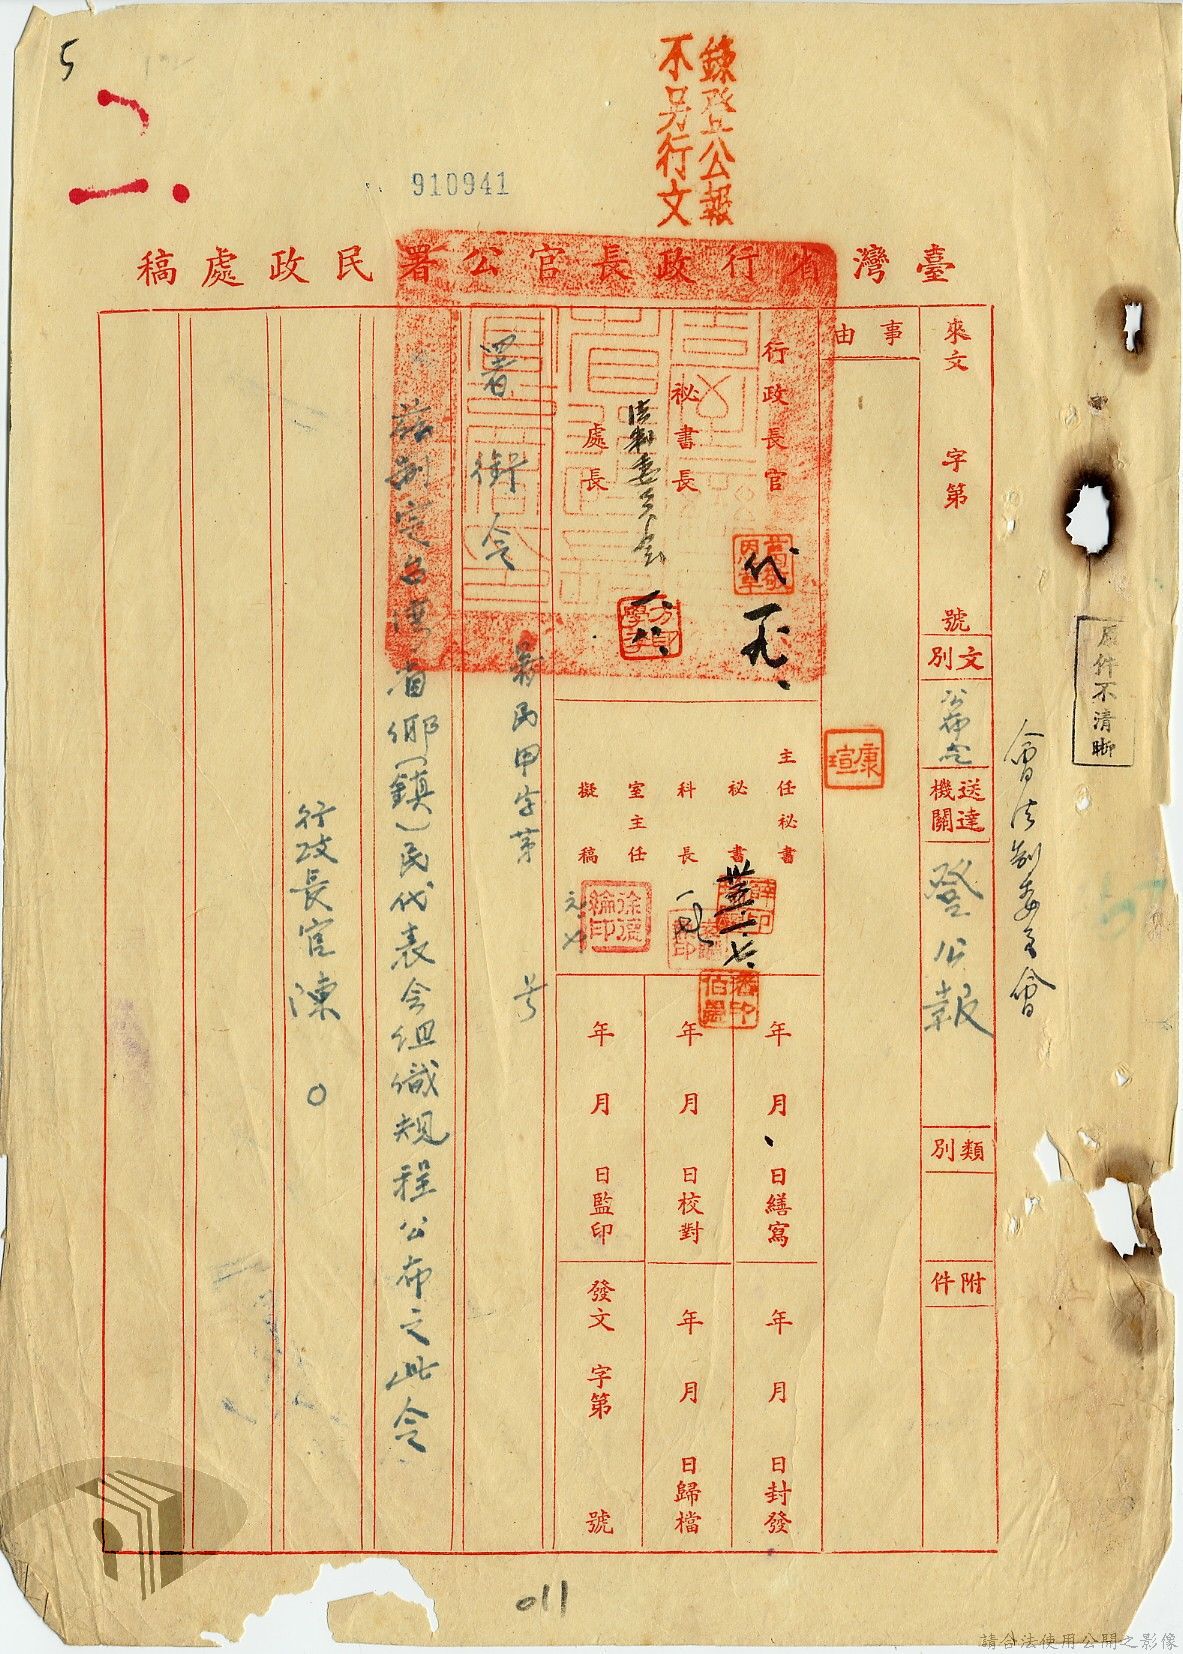 5
二.
錄登公報
不另行文
910941
臺灣省行政長官公署民政處稿
原件不清晰
會法制委員會
來文 字第 號
文別
公布令
送達機關
登公報
類別
附件
事由
行政長官
代
秘書長
法制委員會
處長
康瑄
主任秘書
秘書
科長
室主任
擬稿
年 月 日繕寫
年 月 日校對
年 月 日監印
年 月 日封發
年 月 日歸檔
發文 字第 號
署銜令
署民甲字第 号
茲制定台灣省鄉(鎮)民代表会组織規程公布之此令
行政長官陳○
011
請合法使用公開之影像